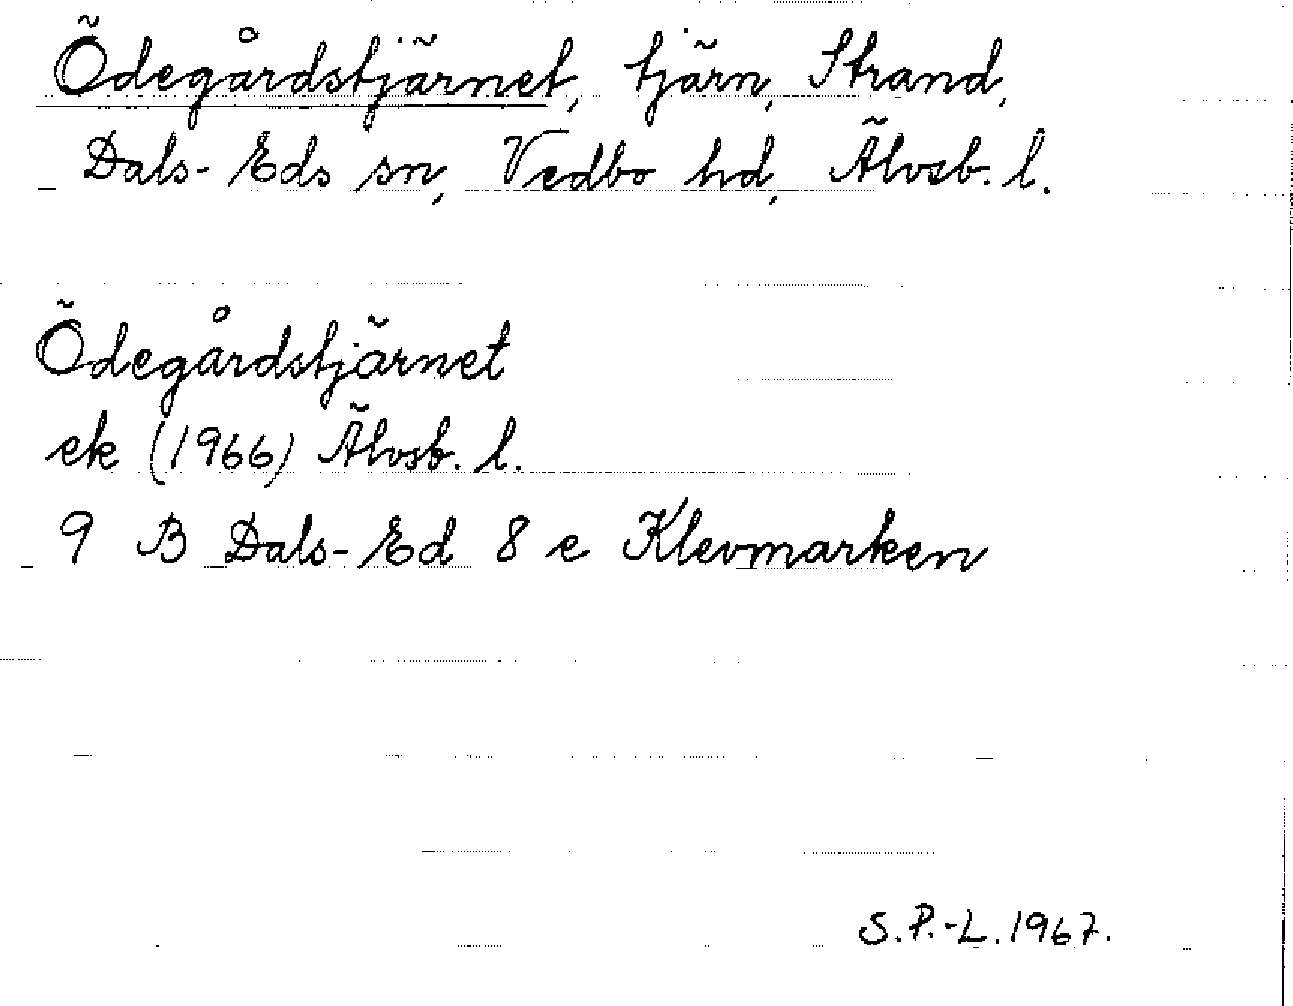 Ödegårdstjärnet, tjärn, Strand,
Dals-Eds sn, Vedbo hd, Älvsb. l.
Ödegårdstjärnet
ek (1966) Älvsb. l.
9 B Dals-Ed 8 e Klevmarken
S.P.-L. 1967.